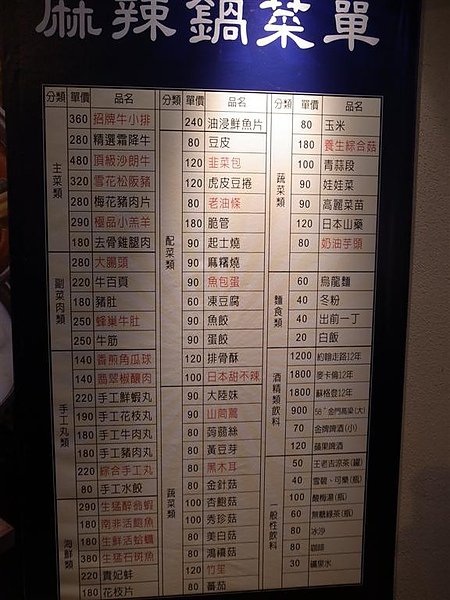 麻辣鍋菜單
分類 單價 品名
主菜類
360 招牌牛小排
280 精選霜降牛
480 頂級沙朗牛
320 雪花松阪豬
280 梅花豬肉片
290 極品小羔羊
180 去骨雞腿肉
副菜肉類
280 大腸頭
220 牛百頁
180 豬肚
250 蜂巢牛肚
250 牛筋
手工丸類
140 香煎角瓜球
140 翡翠椒釀肉
220 手工鮮蝦丸
190 手工花枝丸
180 手工牛肉丸
180 手工豬肉丸
220 綜合手工丸
80 手工水餃
海鮮類
290 生猛醉翁蝦
180 南非活鮑魚
180 生鮮活蛤蠣
380 生猛石斑魚
220 貴妃蚌
180 花枝片
分類 單價 品名
240 油浸鮮魚片
配菜類
80 豆皮
120 韭菜包
120 虎皮豆捲
80 老油條
180 脆管
90 起士燒
90 麻糬燒
90 魚包蛋
60 凍豆腐
90 魚餃
90 蛋餃
120 排骨酥
100 日本甜不辣
蔬菜類
90 大陸妹
90 山茼蒿
80 蒟蒻絲
80 黃豆芽
80 黑木耳
80 金針菇
100 杏鮑菇
100 秀珍菇
80 美白菇
80 鴻禧菇
120 竹笙
80 蕃茄
分類 單價 品名
蔬菜類
80 玉米
180 養生綜合菇
100 青蒜段
90 娃娃菜
90 高麗菜苗
120 日本山藥
80 奶油芋頭
麵食類
60 烏龍麵
40 冬粉
40 出前一丁
20 白飯
酒精類飲料
1200 約翰走路12年
1800 麥卡倫12年
1800 蘇格登12年
900 58°金門高粱(大)
70 金牌啤酒(小)
120 蘋果啤酒
一般性飲料
50 王老吉涼茶(罐)
40 雪碧、可樂(瓶)
100 酸梅湯(瓶)
60 無糖綠茶(瓶)
80 冰沙
80 咖啡
30 礦泉水